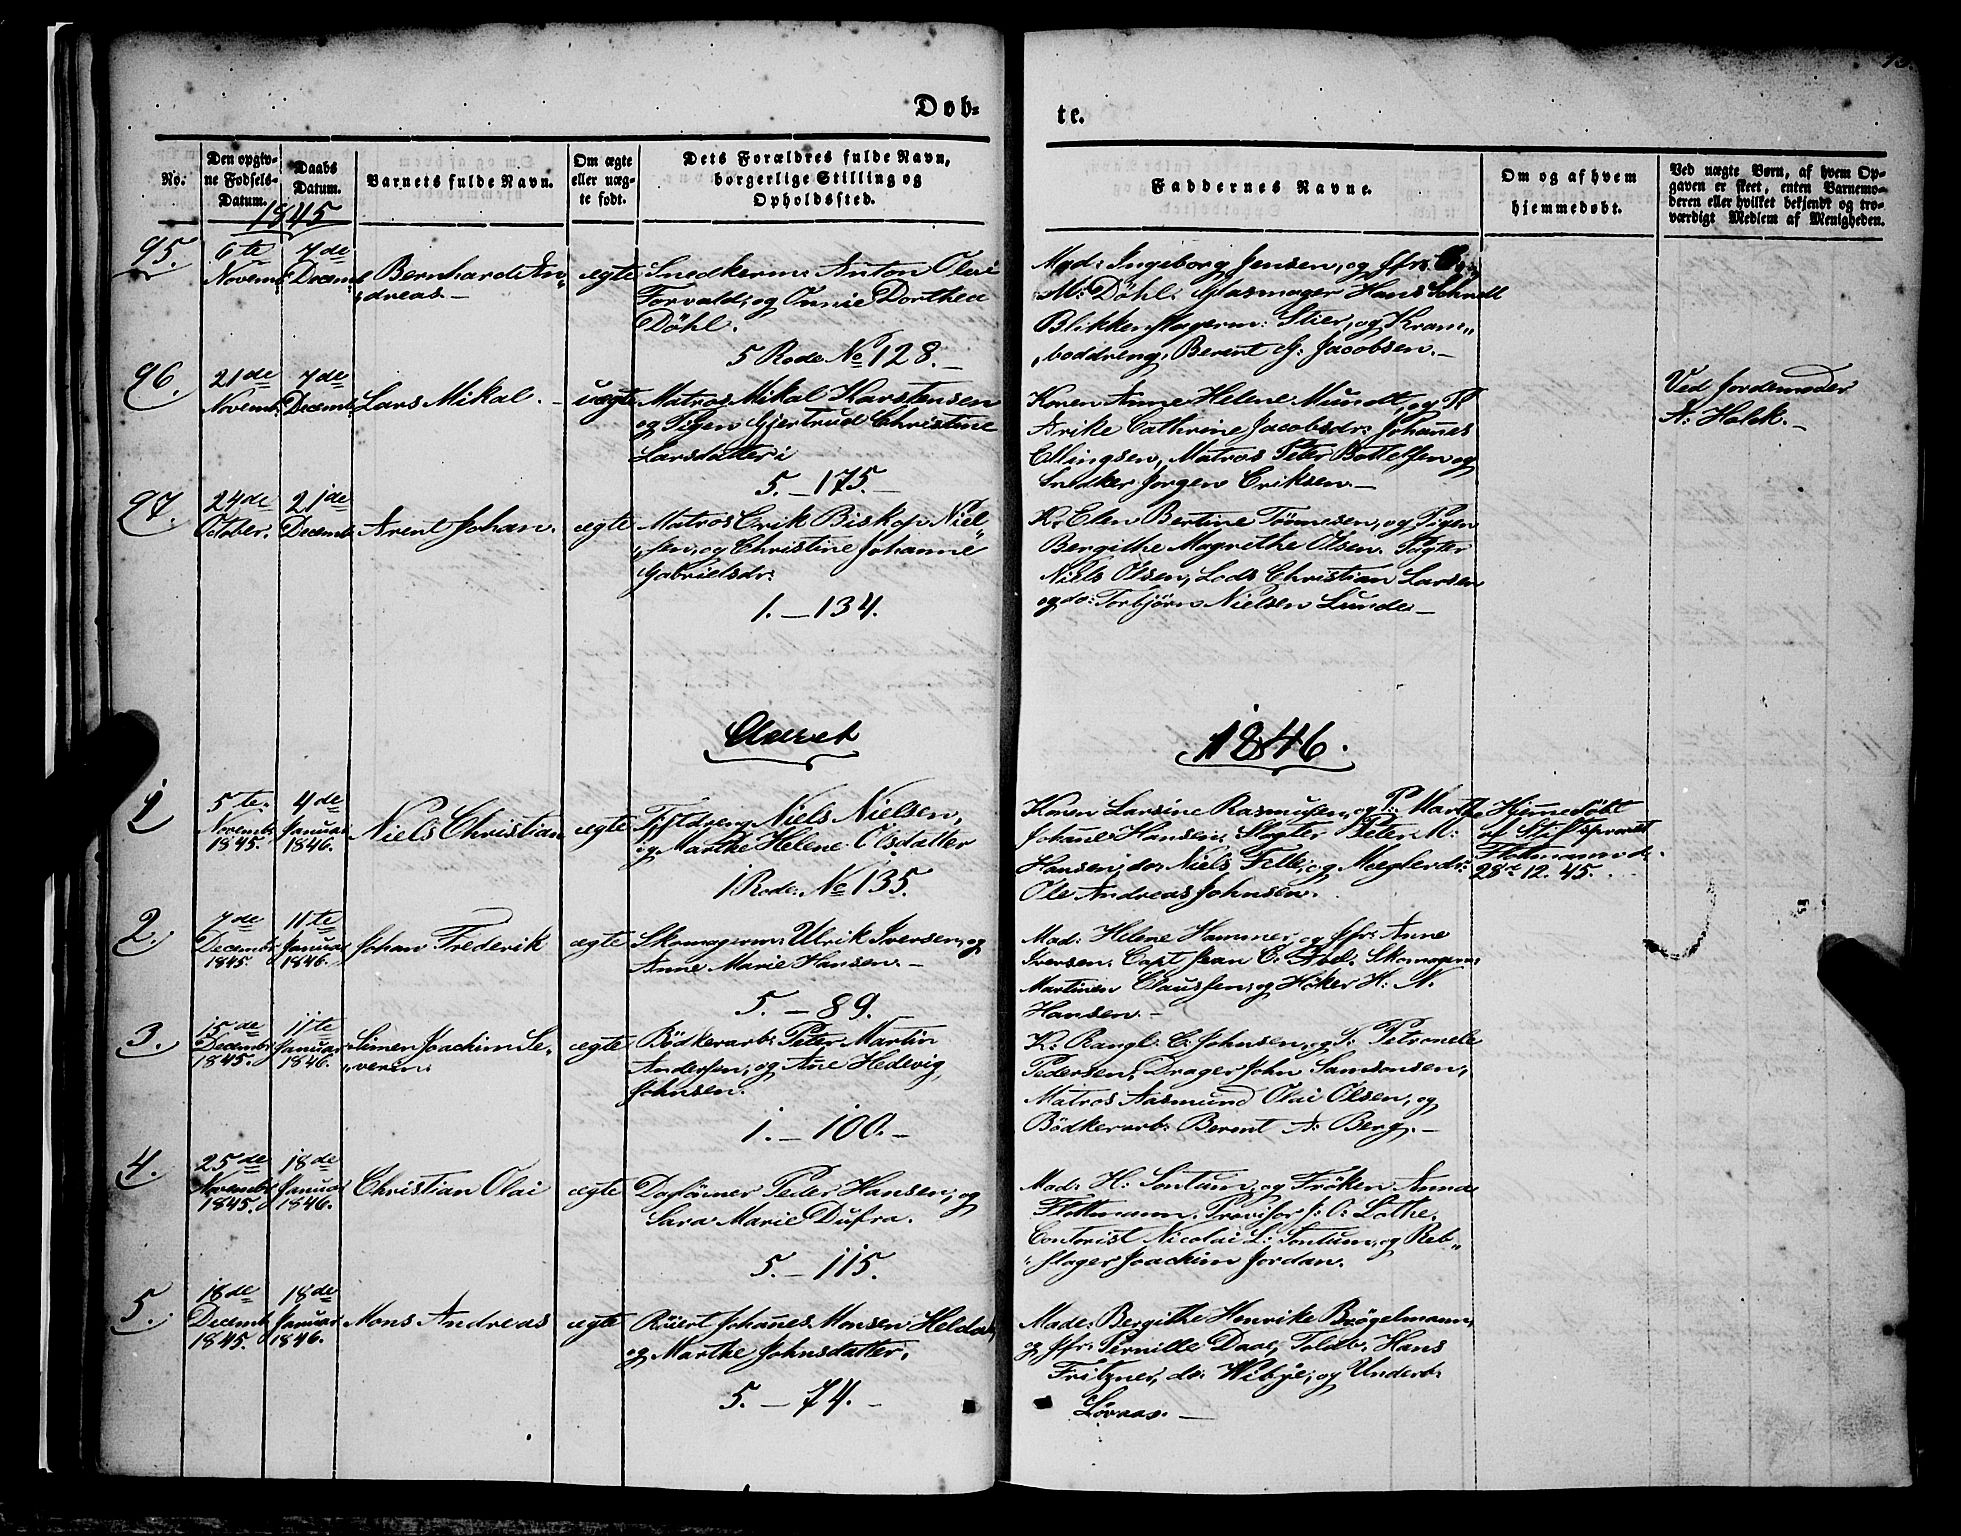 Døb-
te.
No.
Den opgiv-
ne Fødsels-
Datum.
Daabs
Datum.
Barnets fulde Navn.
Om ægte
eller uæg-
te født.
Dets Forældres fulde Navn,
borgerlige Stilling og
Opholdssted.
Faddernes Navne.
Om og af hvem
hjemmedøbt.
Ved uægte Børn, af hvem Op-
gaven er skeet, enten Barnemo-
deren eller hvilket bekjendt og tro-
værdigt Medlem af Menigheden.
1845
95.
6te
Novemb:
7de
Decemb:
Bernhard An„
„dreas.
ægte
Snedkerm: Anton Olai
Torvald; og Onnie Dorthea
Döhl.
5 Rode No 128.
Mad: Ingeborg Jensen, og Jfr:
M: Döhl. Glasmager Hans Schmdt
Blikkenslagerm: Stier, og Kram„
„boddreng, Berent G: Jacobsen.
96.
21de
Novemb:
7de
Decemb:
Lars Mikal.
uægte
Matros Mikal Karstensen
og Pigen Gjertrud Christine
Larsdatter;
5. – 175. –
Konen Anne Helene Mundt, og P
Arike Cathrine Jacobsdr: Johanes
Ellingsen, Matros Peter Bottelsen og
Snedker Jørgen Eriksen.
Ved Jordemoder
A: Holck.
97.
24de
October.
21de
Decemb:
Arent Johan.
ægte
Matros Erik Biskop Niel„
„sen, og Christine Johanne
Gabrielsdr:
1. – 134.
K: Elen Bertine Tönnesen, og Pigen
Bergithe Magrethe Olsen. Slagter
Niels Olsen, Lods Christian Larsen
og do: Torbjörn Nielsen Lunde.
Aaret
1846.
1
5te
Novemb:
1845.
4de
Januar
1846.
Niels Christian
ægte
Tyftdreng Niels Nielsen,
og Marthe Helene Olsdatter
1 Rode. No 135.
Konen Larsine Rasmussen, og P: Marthe
Johane Hansen, Slagter Peter M:
Hansen, do: Niels Felle, og Meglerdr:
Ole Andreas Johnsen.
Hjemmedöbt
af Stiftsprovst
Flottmann d.
28de 12. 45.
2.
7de
Decemb:
1845.
11te
Januar
1846.
Johan Frederik
ægte
Skomagerm: Ulrik Iversen, og
Anne Marie Hansen.
5. – 89.
Mad: Helene Hammer, og Jfr: Anne
Iversen. Capt Jean C: Abel. Skomagerm:
Martinus Claussen, og Höker H: N.
Hansen.
3.
15de
Decemb:
1845.
11te
Januar
1846.
Simen Joachim Se„
„verin.
ægte
Bödkerarb: Peter Martin
Andersen, og Ane Hedevig
Johnsen.
1. – 100. –
K: Rangl. C: Johnsen, og P: Petronele
Pedersen; Drager John Samsonsen,
Matros Aasmund Olai Olsen, og
Bödkerarb: Berent A: Berg.
4.
25de
Novemb:
1845.
18de
Januar
1846.
Christian Olai
ægte
Daglönner Peder Hansen, og
Sara Marie Dufra.
5. – 115.
Mad: H: Sontum, og Fröken Anna
Flottmann. Provisor J: C: Lothe.
Contorist Nicolai L: Sontum, og Reb„
„slager Joachim Jordan.
5.
18de
Decemb:
1845.
18de
Januar
1846.
Mons Andreas
ægte
Röiert Johanes Monsen Heldal,
og Marthe Johnsdatter.
5. – 74. –
Made: Bergithe Henrike Brögelmann,
og Jfr: Pernille Daae, Toldb: Hans
Fritzner, do: Wibye; og Underb:
Lövaas.